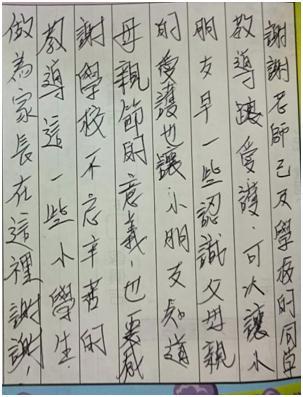 謝謝老師己及學校的同學
教導跟愛護．可以讓小
朋友早一些認識父母親
的愛護也讓．小朋友知道
母親節的意義．也要感
謝學校不忘辛苦的
教導這一些小學生
做為家長在這裡謝謝！